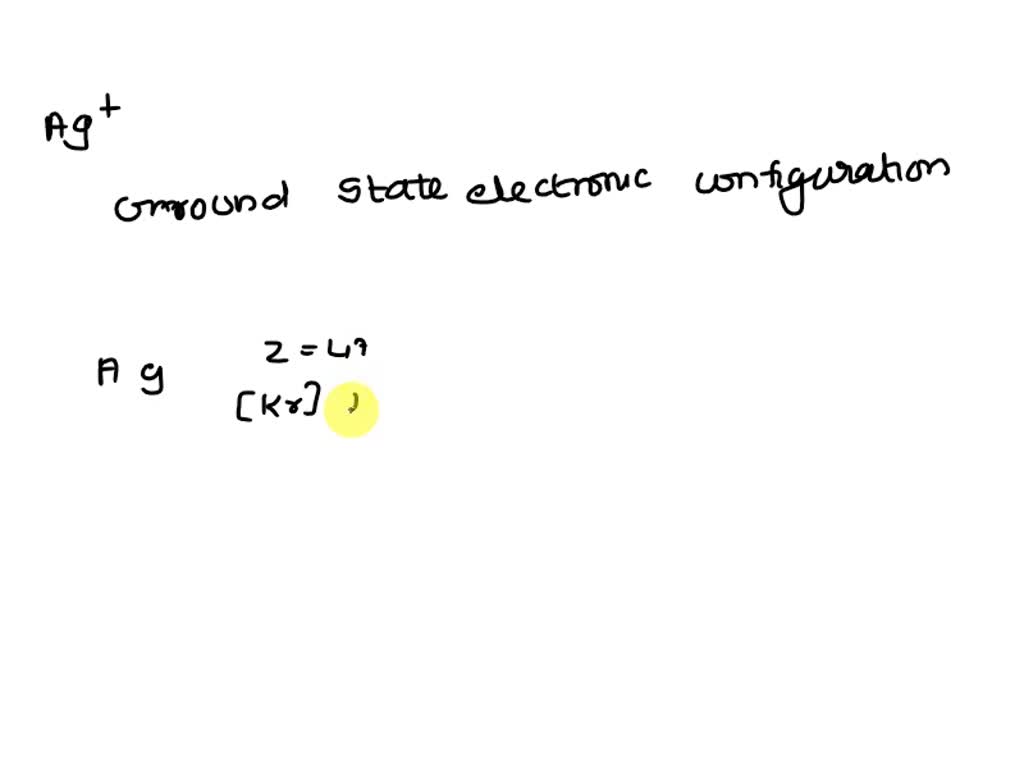 Ag+
Ground state electronic configuration
Ag Z = 47
[Kr]